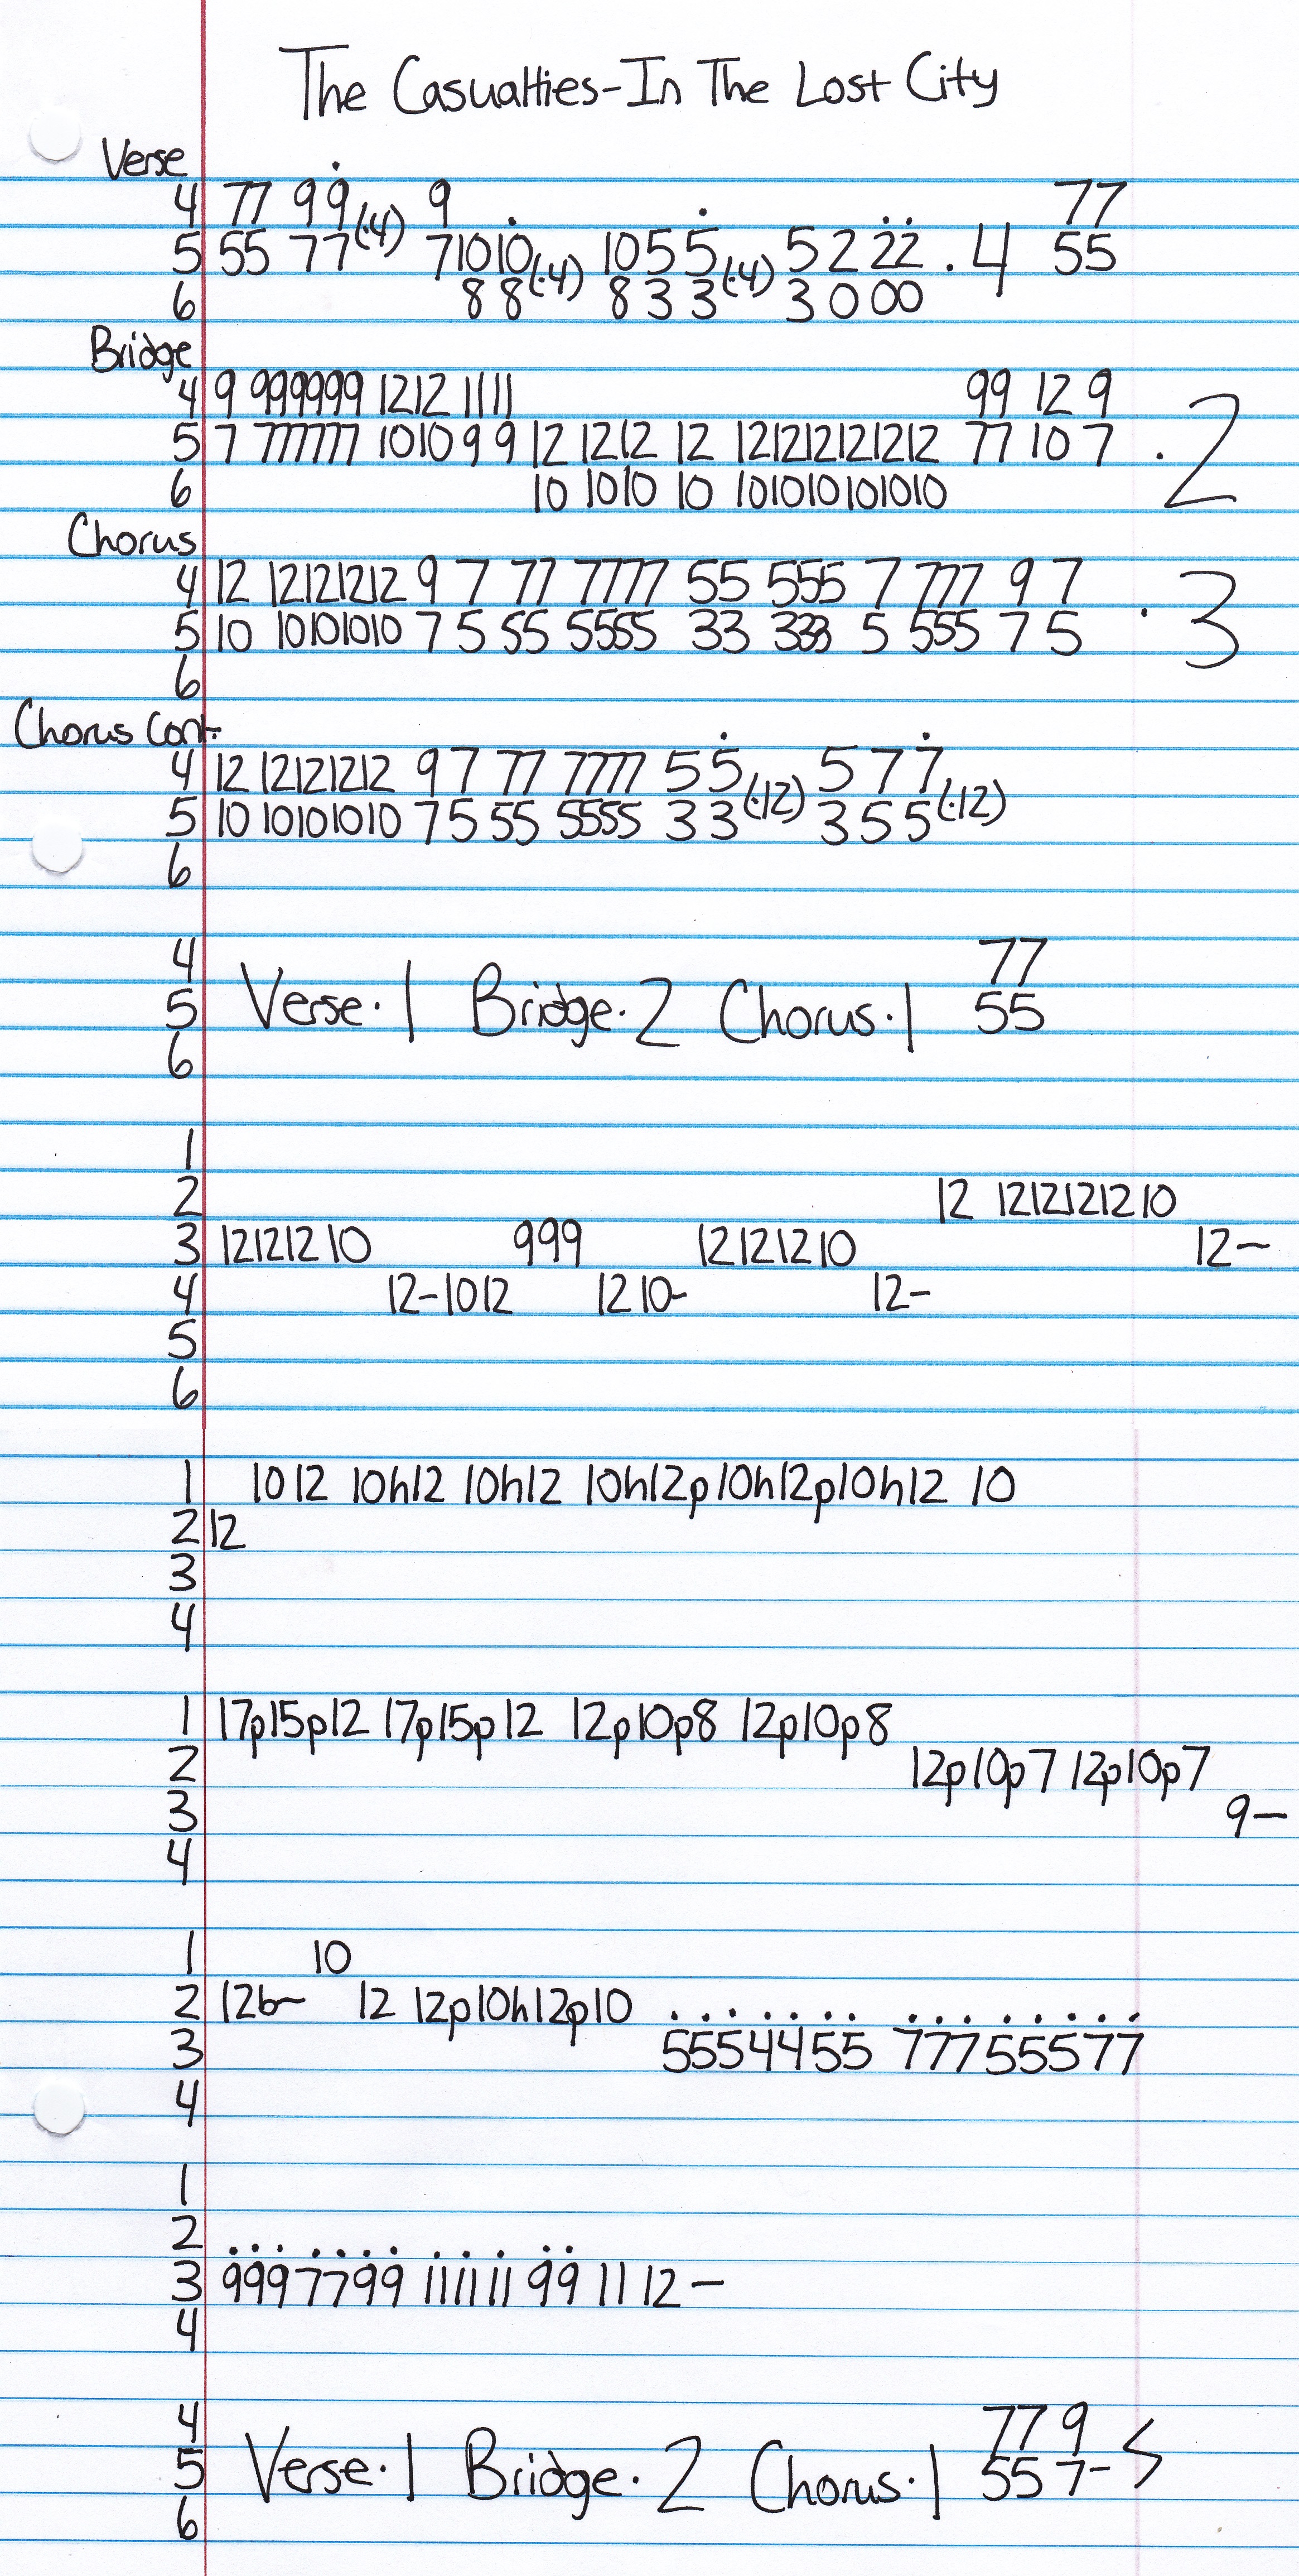 The Casualties-In The Lost City
Verse
4 77 99(·4) 9 77
5 55 77 71010(·4) 1055(·4) 5222 ·4 55
6 88 833 3000
Bridge
4 9 999999 1212 1111 99 12 9
5 7 777777 1010 99 12 1212 12 121212121212 77 10 7 ·2
6 10 1010 10 101010101010
Chorus
4 12 12121212 9 7 77 7777 55 555 7 777 9 7
5 10 10101010 7 5 55 5555 33 333 5 555 7 5 ·3
6
Chorus Cont.
4 12 12121212 9 7 77 7777 55(·12) 577(·12)
5 10 10101010 7 5 55 5555 33 355
6
4 77
5 Verse·1 Bridge·2 Chorus·1 55
6
1
2 12 1212121210
3 12121210 999 12121210 12-
4 12-1012 1210- 12-
5
6
1 1012 10h12 10h12 10h12p10h12p10h12 10
2 12
3
4
1 17p15p12 17p15p12 12p10p8 12p10p8
2 12p10p7 12p10p7
3 9-
4
1 10
2 12b~ 12 12p10h12p10
3 5554455 77755577
4
1
2
3 9997799 111111 99 11 12-
4
4 77 9
5 Verse·1 Bridge·2 Chorus·1 55 7-
6